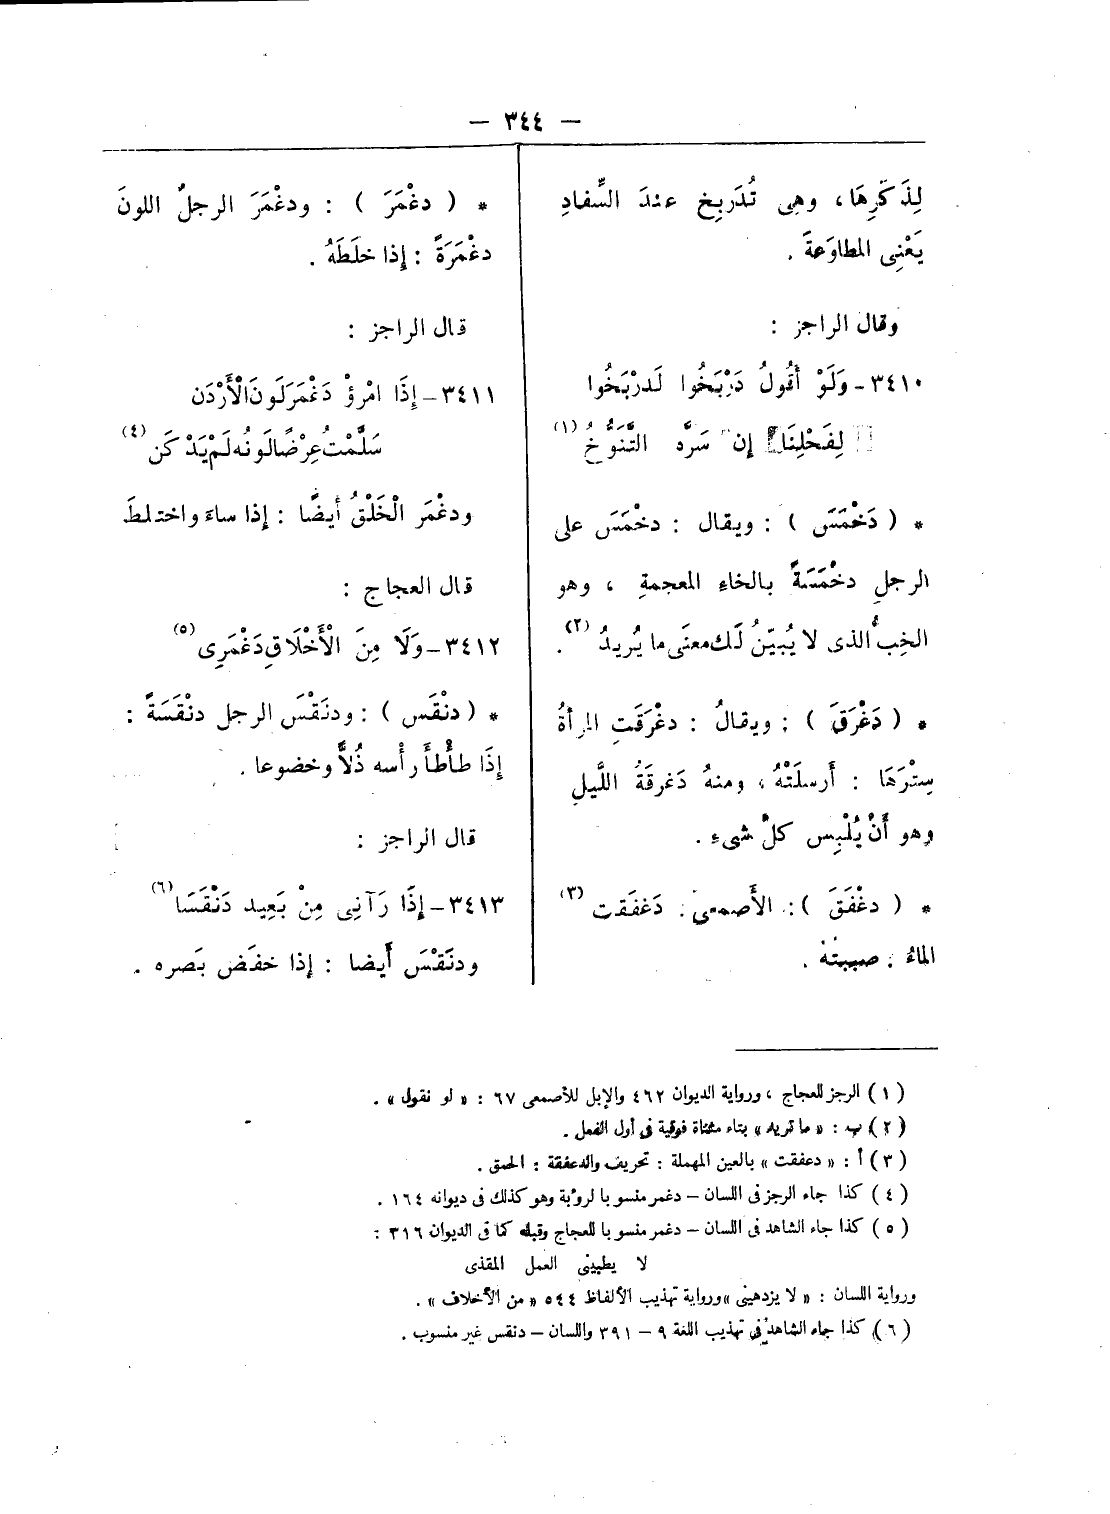 — ٣٤٤ —
لِذَكَرِهَا، وهى تُدَربِخ عندَ السِّفادِ
يَعْنِى المطاوَعةَ .
وقال الراجز :
٣٤١٠- وَلَوْ أقُولُ دَرْبَخُوا لَدرْبَخُوا
لِفَحْلِنَا إن سَرَّه التَّنَوُّخُ (١)
* ( دَخْمَسَ ) : ويقال : دخْمَسَ على
الرجلِ دخْمَسَةً بالخاءِ المعجمةِ ، وهو
الخِبُّ الذى لا يُبيّنُ لَك معنَى ما يُريدُ (٢) .
* ( دَغْرَقَ ) : ويقالُ : دغْرَقَتِ المرأةُ
سِتْرَهَا : أَرسلَتْهُ ، ومنهُ دَغرقَةُ اللَّيلِ
وهو أَنْ يُلْبِس كلَّ شىءٍ .
* ( دغْفَقَ ) : الأَصمعى : دَغفَقت (٣)
الماءَ : صببتهُ .
* ( دغْمَرَ ) : ودغْمَرَ الرجلُ اللونَ
دغْمَرَةً : إذا خلَطَهُ .
قال الراجز :
٣٤١١- إِذَا امْرِؤٌ دَغْمَرَ لَونَ الْأَرْدَنِ
سَلَّمْتُ عِرْضًا لَونُه لَمْ يَدْكَنِ (٤)
ودغْمَر الْخَلْقُ أيضًا : إذا ساءَ واختلطَ
قال العجاج :
٣٤١٢- وَلَا مِنَ الْأَخْلَاقِ دَغْمَرِى (٥)
* ( دنْقَس ) : ودنَقْسَ الرجل دنْقَسَةً :
إِذَا طأْطأَ رأْسه ذُلاًّ وخضوعا .
قال الراجز :
٣٤١٣- إِذَا رَآنِى مِنْ بَعِيد دَنْقَسَا (٦)
ودنَقْسَ أَيضا : إذا خفَض بَصره .
(١) الرجز للعجاج ، ورواية الديوان ٤٦٢ والإبل للأصمعى ٦٧ : « لو نقول » .
(٢) ب : « ما تريد » بتاء مثناة فوقية فى أول الفعل .
(٣) أ : « دعفقت » بالعين المهملة : تحريف والدعفقة : الحمق .
(٤) كذا جاء الرجز فى اللسان – دغمر منسوبا لرؤبة وهو كذلك فى ديوانه ١٦٤ .
(٥) كذا جاء الشاهد فى اللسان – دغمر منسوبا للعجاج وقبله كما فى الديوان ٣١٦ :
لا يطبينى العمل المقذى
ورواية اللسان : « لا يزدهينى » ورواية تهذيب الألفاظ ٥٤٤ « من الأخلاف » .
(٦) كذا جاء الشاهد فى تهذيب اللغة ٩ – ٣٩١ واللسان – دنقس غير منسوب .